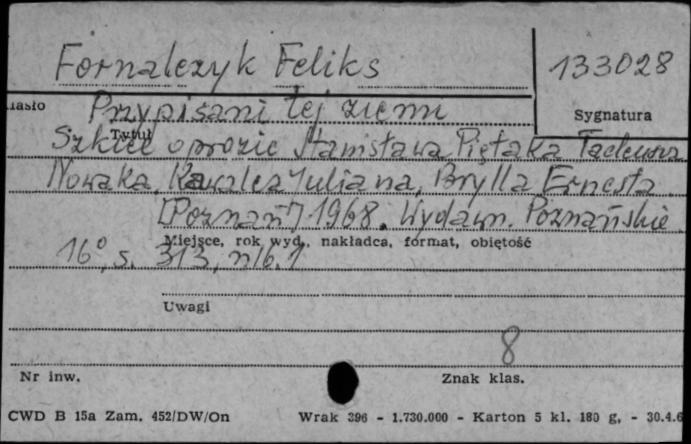 Fornalczyk Feliks
133028
Hasło
Przypisani tej ziemi
Sygnatura
Tytuł
Szkice o prozie Stanisława Piętaka Tadeusza
Nowaka, Kawalca Juliana, Brylla Ernesta.
[Poznań] 1968. Wydawn. Poznańskie.
Miejsce, rok wyd., nakładca, format, objętość
16°, s. 313, nlb. 1
Uwagi
8
Nr inw.
Znak klas.
CWD B 15a Zam. 452/DW/On
Wrak 396 - 1.730.000 - Karton 5 kl. 180 g, - 30.4.6